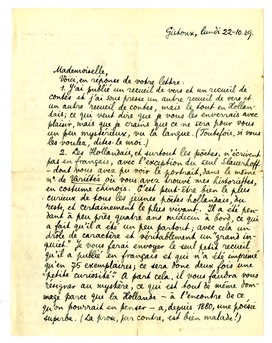 Gistoux, lundi 22-10.29.
Mademoiselle,
Voici, en réponse de votre lettre:
1. J'ai publié un recueil de vers et un recueil de
contes et j'ai sous presse un autre recueil de vers et
un autre recueil de contes, mais le tout en Hollan-
dais; ce qui veut dire que je vous les enverrais avec
plaisir, mais que je crains que ce ne sera pour vous
un peu mystérieux, vu la langue. (Toutefois, si vous
les voulez, dites-le moi.)
2. Les Hollandais, et surtout les poètes, n'écrivent
pas en français, avec l'exception du seul Slauerhoff
- dont vous avez pu voir le portrait, dans le même
no de Variétés où vous avez trouvé mes historiettes,
en costume chinois. C'est peut-être bien le plus
curieux de tous les jeunes poètes hollandais, du
reste, et certainement le plus vivant. Il a été pen-
dant à peu près quatre ans médecin à bord, ce qui
a fait qu'il a été un peu partout; avec cela un
drôle de caractère et véritablement un "grand in-
quiet". Je vous ferai envoyer le seul petit recueil
qu'il a publié en français et qui n'a été imprimé
qu'en 75 exemplaires; ce sera donc deux fois une
"petite curiosité". A part cela, il vous faudra vous
résigner au mystère, ce qui est tout de même dom-
mage parce que la Hollande - à l'encontre de ce
qu'on pourrait en penser - a, depuis 1880, une poésie
superbe. (La prose, par contre, est bien malade!)